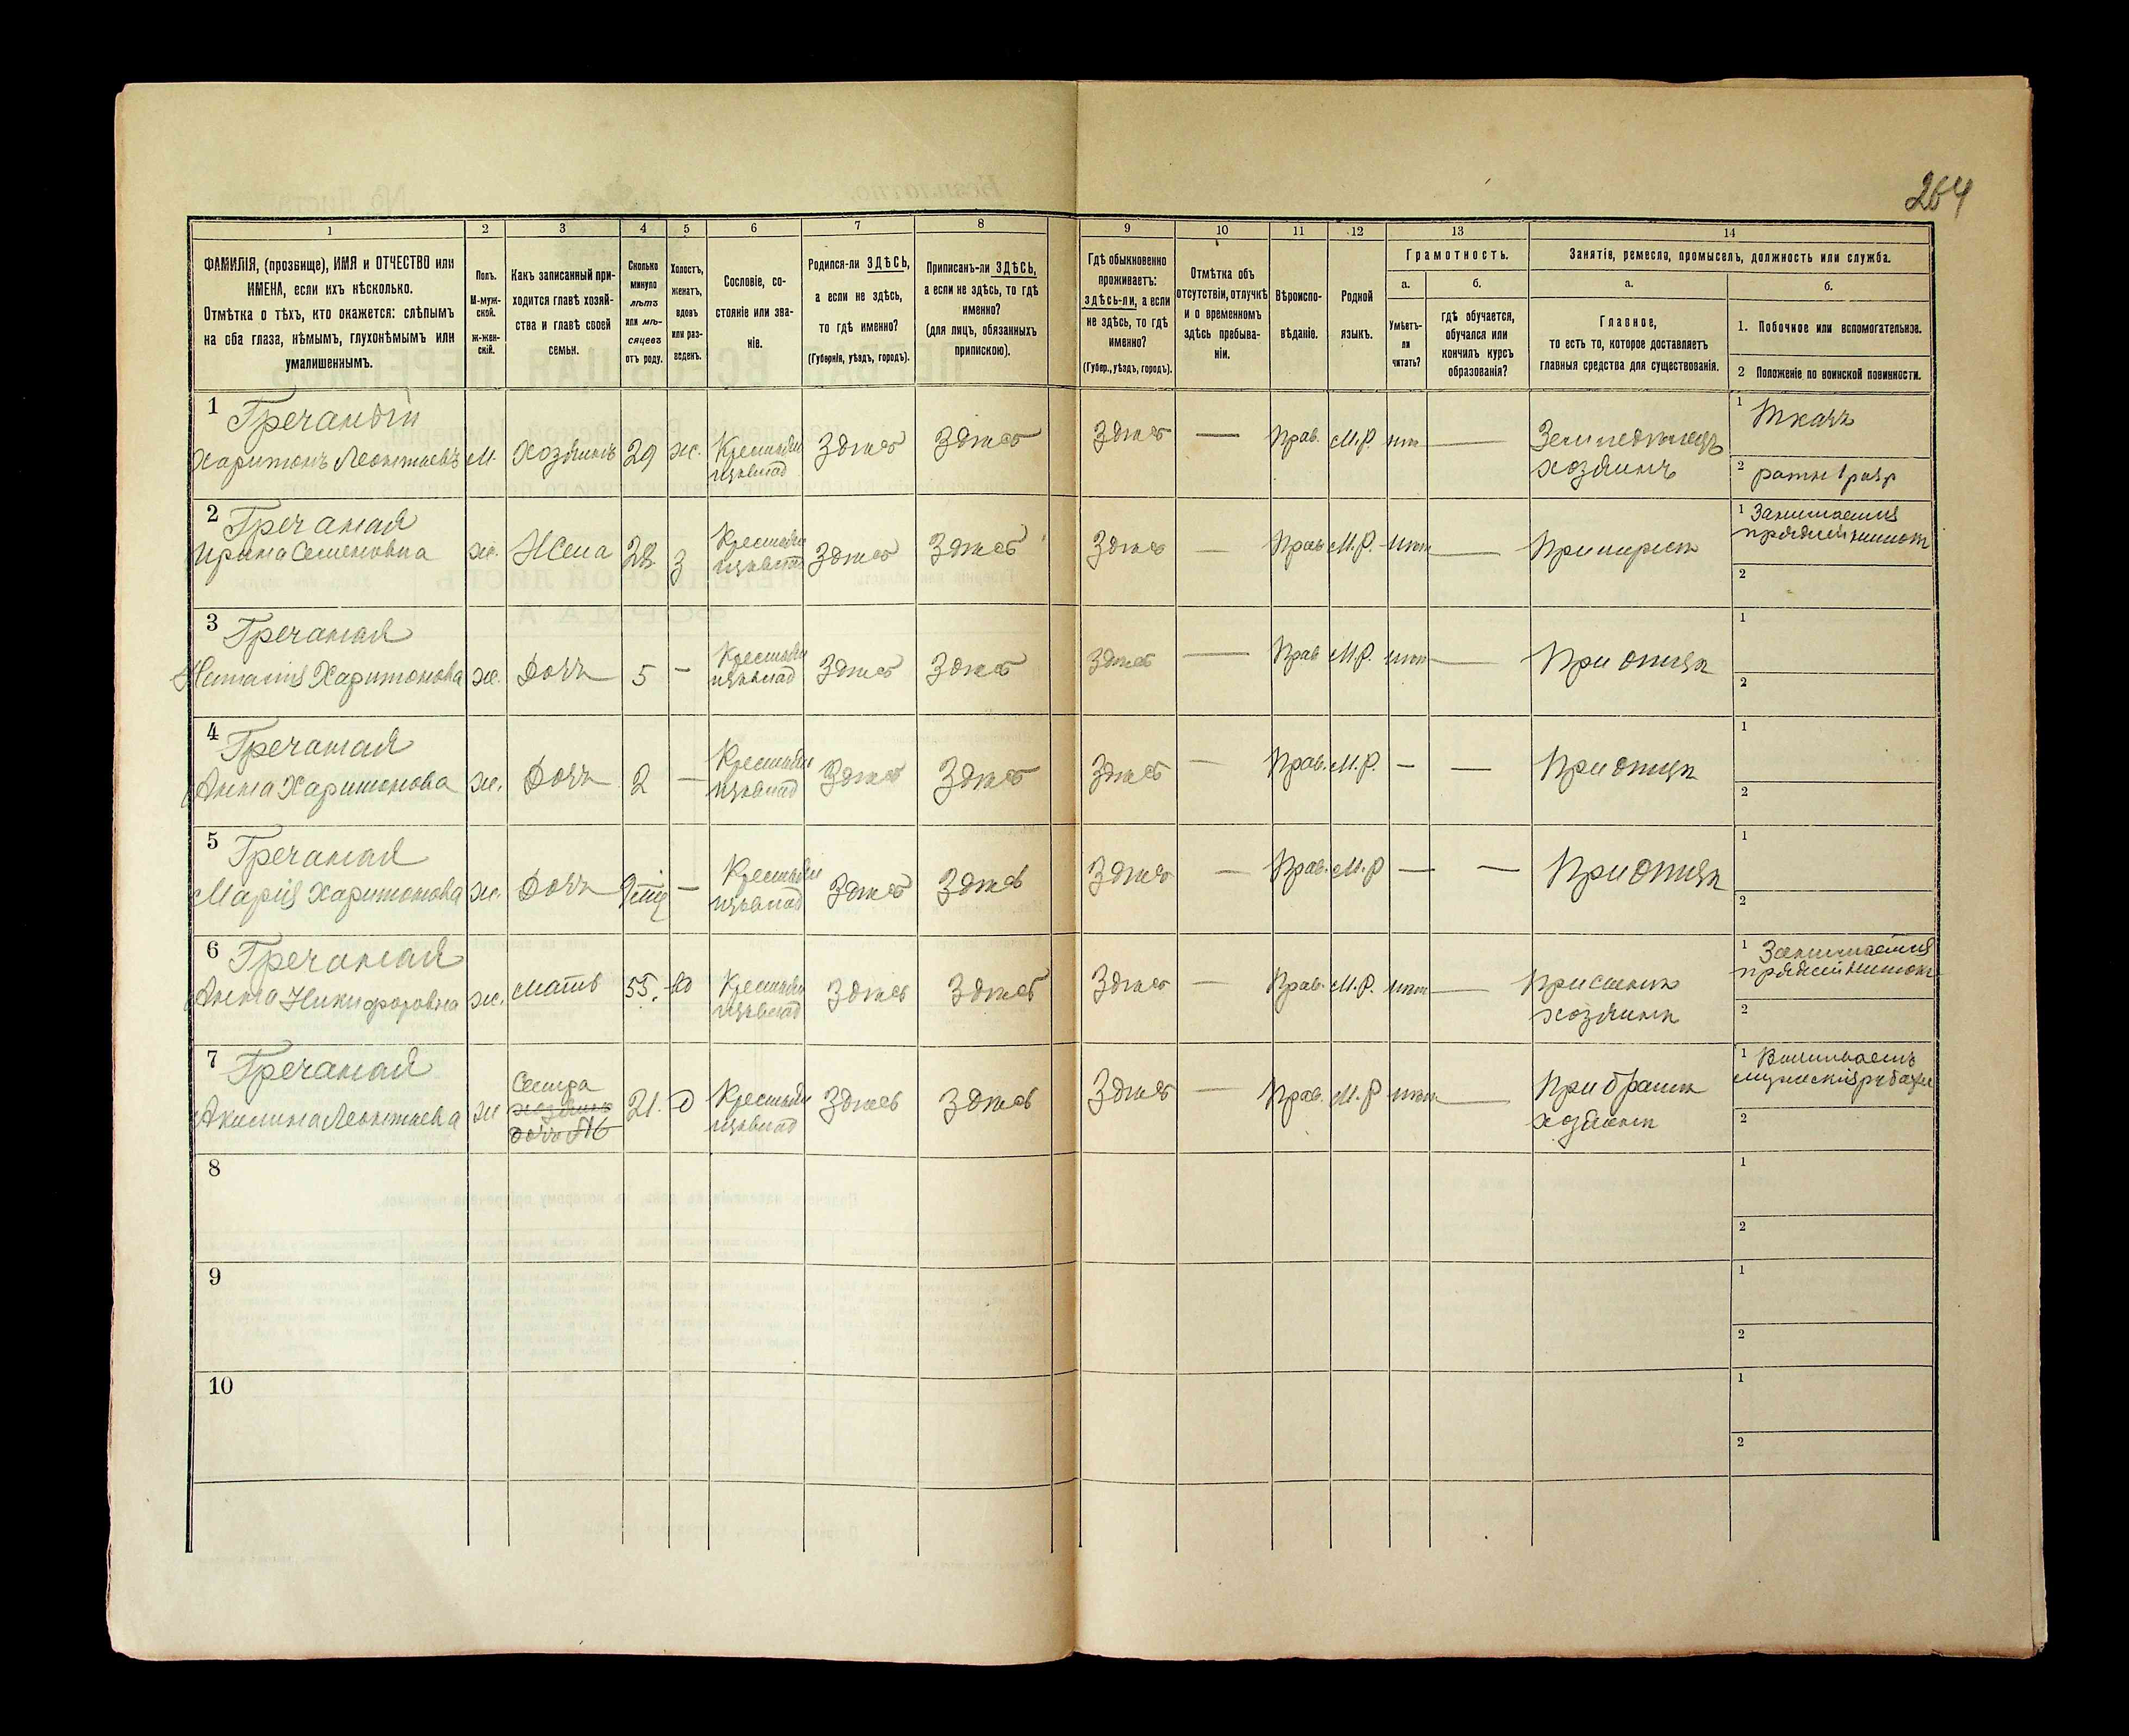 264
1
2
3
4
5
6
7
8
9
10
11
12
13
14
ФАМИЛІЯ, (прозвище), ИМЯ и ОТЧЕСТВО или
ИМЕНА, если ихъ нѣсколько.
Отмѣтка о тѣхъ, кто окажется: слѣпымъ
на оба глаза, нѣмымъ, глухонѣмымъ или
умалишеннымъ.
Полъ.
М-муж-
ской.
ж-жен-
скій.
Какъ записанный при-
ходится главѣ хозяй-
ства и главѣ своей
семьи.
Сколько
минуло
лѣтъ
или мѣ-
сяцевъ
отъ роду.
Холостъ,
женатъ,
вдовъ
или раз-
веденъ.
Сословіе, со-
стояніе или зва-
ніе.
Родился-ли ЗДѢСЬ,
а если не здѣсь,
то гдѣ именно?
(Губернія, уѣздъ, городъ).
Приписанъ-ли ЗДѢСЬ,
а если не здѣсь, то гдѣ
именно?
(для лицъ, обязанныхъ
припискою).
Гдѣ обыкновенно
проживаетъ:
здѣсь-ли, а если
не здѣсь, то гдѣ
именно?
(Губер., уѣздъ, городъ).
Отмѣтка объ
отсутствіи, отлучкѣ
и о временномъ
здѣсь пребыва-
ніи.
Вѣроиспо-
вѣданіе.
Родной
языкъ.
Грамотность.
а.
Умѣетъ-
ли
читать?
б.
гдѣ обучается,
обучался или
кончилъ курсъ
образованія?
Занятіе, ремесло, промыселъ, должность или служба.
а.
Главное,
то есть то, которое доставляетъ
главныя средства для существованія.
б.
1. Побочное или вспомогательное.
2 Положеніе по воинской повинности.
1 Гречаный
Харитонъ Леонтьевъ м. хозяинъ 29 ж. Крестьян Здѣсь Здѣсь Здѣсь — Прав. М.Р. нѣт — Земледѣлецъ
хозяинъ
1 Ткачъ
2 ратн 1 разр
2 Гречаная
Ирина Семеновна ж. Жена 28 З Крестьян Здѣсь Здѣсь Здѣсь — Прав М.Р. нѣт — При мужѣ
1 Занимается
пряжей нитокъ
2
3 Гречаная
Наталія Харитонова ж. Дочь 5 — Крестьян Здѣсь Здѣсь Здѣсь — Прав М.Р. нѣт — При отцѣ
1
2
4 Гречаная
Анна Харитонова ж. Дочь 2 — Крестьян Здѣсь Здѣсь Здѣсь — Прав. М.Р. — — При отцѣ
1
2
5 Гречаная
Марія Харитонова ж. Дочь — Крестьян Здѣсь Здѣсь Здѣсь — Прав. М.Р — — При отцѣ
1
2
6 Гречаная
Анна Никифоровна ж. мать 55. Крестьян Здѣсь Здѣсь Здѣсь — Прав. М.Р. нѣт — При сынѣ
хозяинѣ
1 Занимается
пряжей нитокъ
2
7 Гречаная
Акилина Леонтьева ж Сестра
хозяина
дочь №6
21. Д Крестьян Здѣсь Здѣсь Здѣсь — Прав. М.Р нѣт — При братѣ
хозяинѣ
1
2
8
1
2
9
1
2
10
1
2